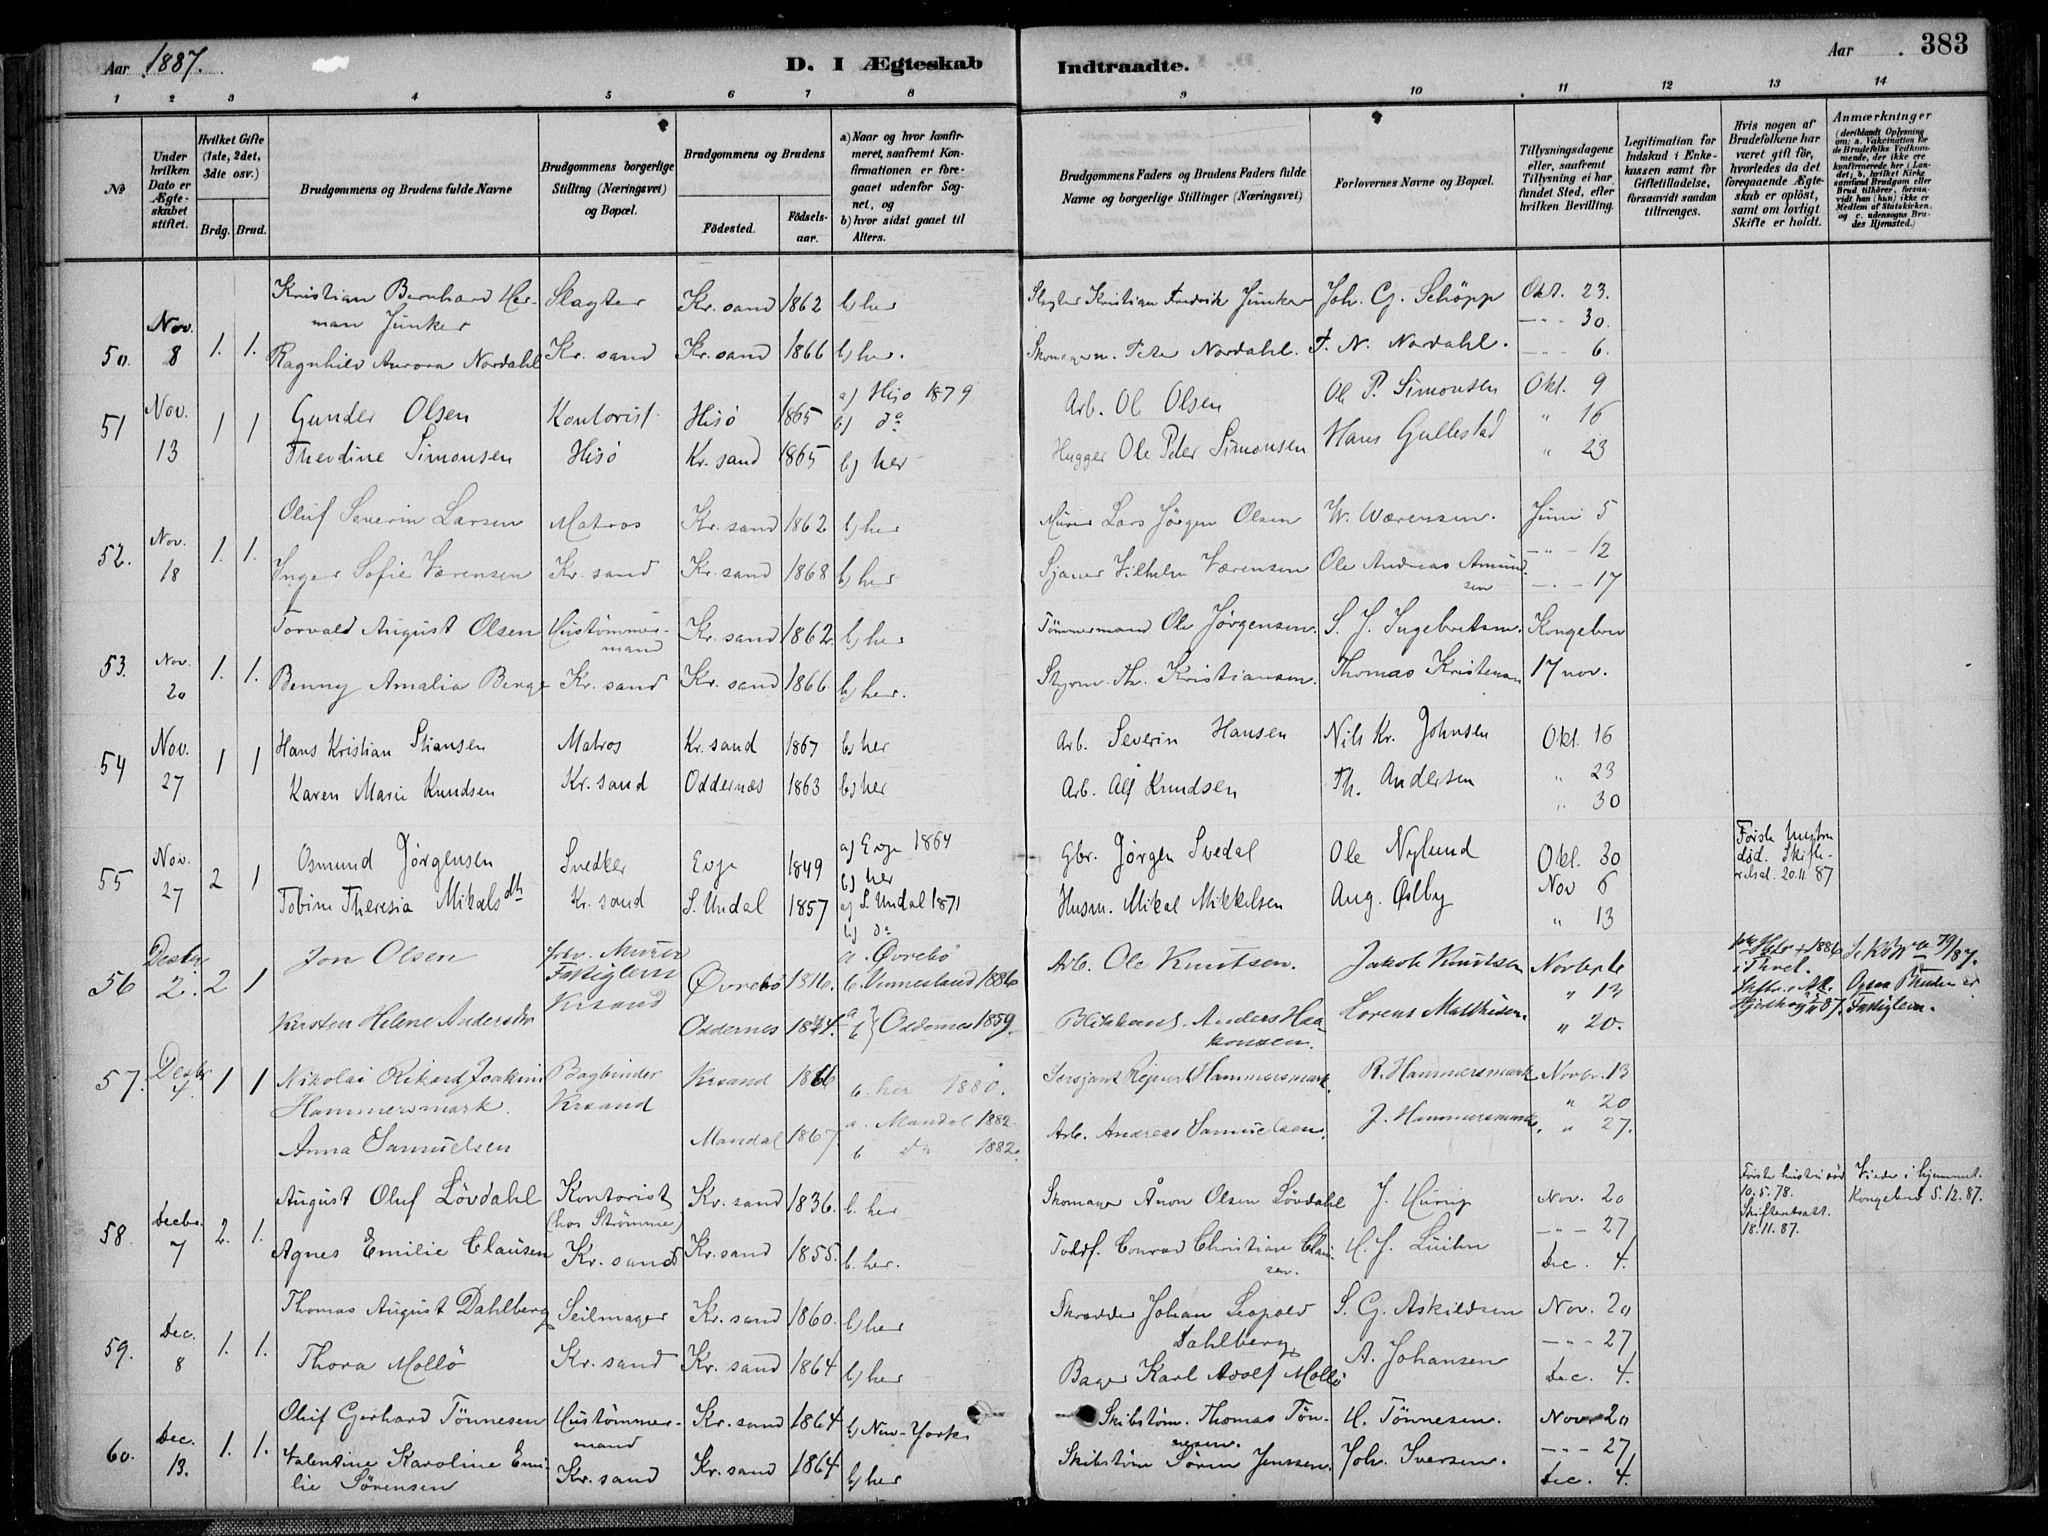 Aar 1887.
D. I Ægteskab Indtraadte.
Aar 383
1 2 3 4 5 6 7 8 9 10 11 12 13 14
No
Under hvilken Dato er Ægteskabet stiftet.
Hvilket Gifte (1ste, 2det, 3die osv.)
Brdg. Brud.
Brudgommens og Brudens fulde Navne
Brudgommens borgerlige Stilling (Næringsvei) og Bopæl.
Brudgommens og Brudens
Födested. Födsels-aar.
a) Naar og hvor konfirmeret, saafremt Konfirmationen er foregaaet udenfor Sognet, og
b) hvor sidst gaaet til Alters.
Brudgommens Faders og Brudens Faders fulde Navne og borgerlige Stillinger (Næringsvei)
Forlovernes Navne og Bopæl.
Tillysningsdagene eller, saafremt Tillysning ei har fundet Sted, efter hvilken Bevilling.
Legitimation for Indskud i Enkekassen samt for Giftetilladelse, forsaavidt saadan tiltrænges.
Hvis nogen af Brudefolkene har været gift för, hvorledes da det foregaaende Ægteskab er oplöst, samt om lovligt Skifte er holdt.
Anmærkninger
(deriblandt Oplysning om: a. Vakcination for de Brudefolks Vedkommende, der ikke ere konfirmerede her i Landet; b. hvilket Kirkesamfund Brudgom eller Brud tilhörer, forsaavidt han (hun) ikke er Medlem af Statskirken, og c. udensogns Brudes Hjemsted.)
50. Nov. 8 1. 1. Kristian Bernhard Herman Junker Slagter Kr. sand 1862 b) her Slagter Kristian Fredrik Junker Joh. G. Schöpp Okt. 23.
Ragnhild Aurora Nordahl Kr. sand Kr. sand 1866 b) her. Peter Nordahl. F. N. Nordahl. 30. 6.
51 Nov. 13 1 1 Gunder Olsen Kontorist Hisö 1865 a) Hisö 1879 b) do Arb. Ol Olsen Ole P. Simonsen Okt. 9
Theodine Simonsen Hisö Kr. sand 1865 b) her Hugger Ole Peter Simonsen Hans Gullestad " 16 " 23
52. Nov. 18 1. 1. Oluf Severin Larsen Matros Kr. sand 1862 b) her Murer Lars Jörgen Olsen W. Wærensen. Juni 5
Inger Sofie Værensen Kr. sand Kr. sand 1868 b) her Sjauer Vilhelm Værensen Ole Andreas Amundsen 12 17
53. Nov. 20 1. 1. Torvald August Olsen Hustømmermand Kr. sand 1862. b) her Tømmermand Ole Jörgensen. S. J. Ingebretsen. Kongebrev
Benny Amalia Berge Kr. sand Kr. sand 1866 b) her. Styrm. Th. Kristiansen. Thomas Kristensen 17 nov.
54 Nov. 27 1 1 Hans Kristian Stiansen Matros Kr. sand 1867 b) her Arb. Severin Hansen Nils Kr. Johnsen Okt. 16
Karen Marie Knudsen Kr. sand Oddernæs 1863 b) her Arb. Alf Knudsen Th. Andersen " 23 " 30
55 Nov. 27 2 1 Osmund Jörgensen Snedker Evje 1849 a) Evje 1864 b) her Gbr. Jörgen Svedal Ole Nylund Okl. 30 Første Hustru død. Skifte- 20.11.87
Tobine Theresia Mikalsdtr Kr. sand S. Undal 1857 a) S. Undal 1871 b) do Husm. Mikal Mikkelsen Aug. Østby Nov 6 " 13
56 Desbr 2. 2 1 Jon Olsen Murer Fattiglem Krsand Øvrebö 1816. a. Øvrebö b. Vennesland 1886 Arb. Ole Knutsen. Jakob Knutsen Novbr 6
Kirsten Helene Andersdtr Oddernes 1844. a b } Oddernes 1859. Anders Haakonsen. Lorens Mathisen. " 13 " 20.
Fattiglem.
57. Desbr 4. 1 1 Nikolai Rikard Joakim Hammersmark. Bogbinder Krsand Krsand 1866 b. her 1880. Sersjant Rejnert Hammersmark. R. Hammersmark. Novbr. 13
Anna Samuelsen Mandal 1867 a. Mandal 1882. b do 1882. Arb. Andreas Samuelsen. J. Hammersmark. " 20 " 27.
58. Decbr. 7 2. 1. August Oluf Lövdahl Kontorist (hos Strømme) Kr. sand 1836. b. her Skomager Ånon Olsen Lövdahl Nov. 20 Første hustru død 10.5.78. 18.11.87. Viede i hjemmet. Kongebrev 5.12.87.
Agnes Emilie Clausen Kr. sand Kr. sand 1855. b. her. Toldf. Conrad Christian Clausen. 27 Dec. 4.
59. Dec. 8 1. 1. Thomas August Dahlberg Seilmager Kr. sand 1860. b) her Skrædder Johan Leopold Dahlberg S. G. Askildsen Nov. 20
Thora Mollö Kr. sand Kr. sand 1864 b) her Bager Karl Adolf Mollö A. Johansen 27 Dec. 4.
60. Dec. 13. 1. 1. Oluf Gerhard Tönnesen Hustømmermand Kr. sand 1864 b) New-York Skibstøm. Thomas Tönnesen. H. Tönnesen. Nov. 20
Valentine Karoline Emilie Sörensen Kr. sand Kr. sand 1864 b) her Skibstøm Sören Jenssen. Joh. Iversen. 27 Dec. 4.